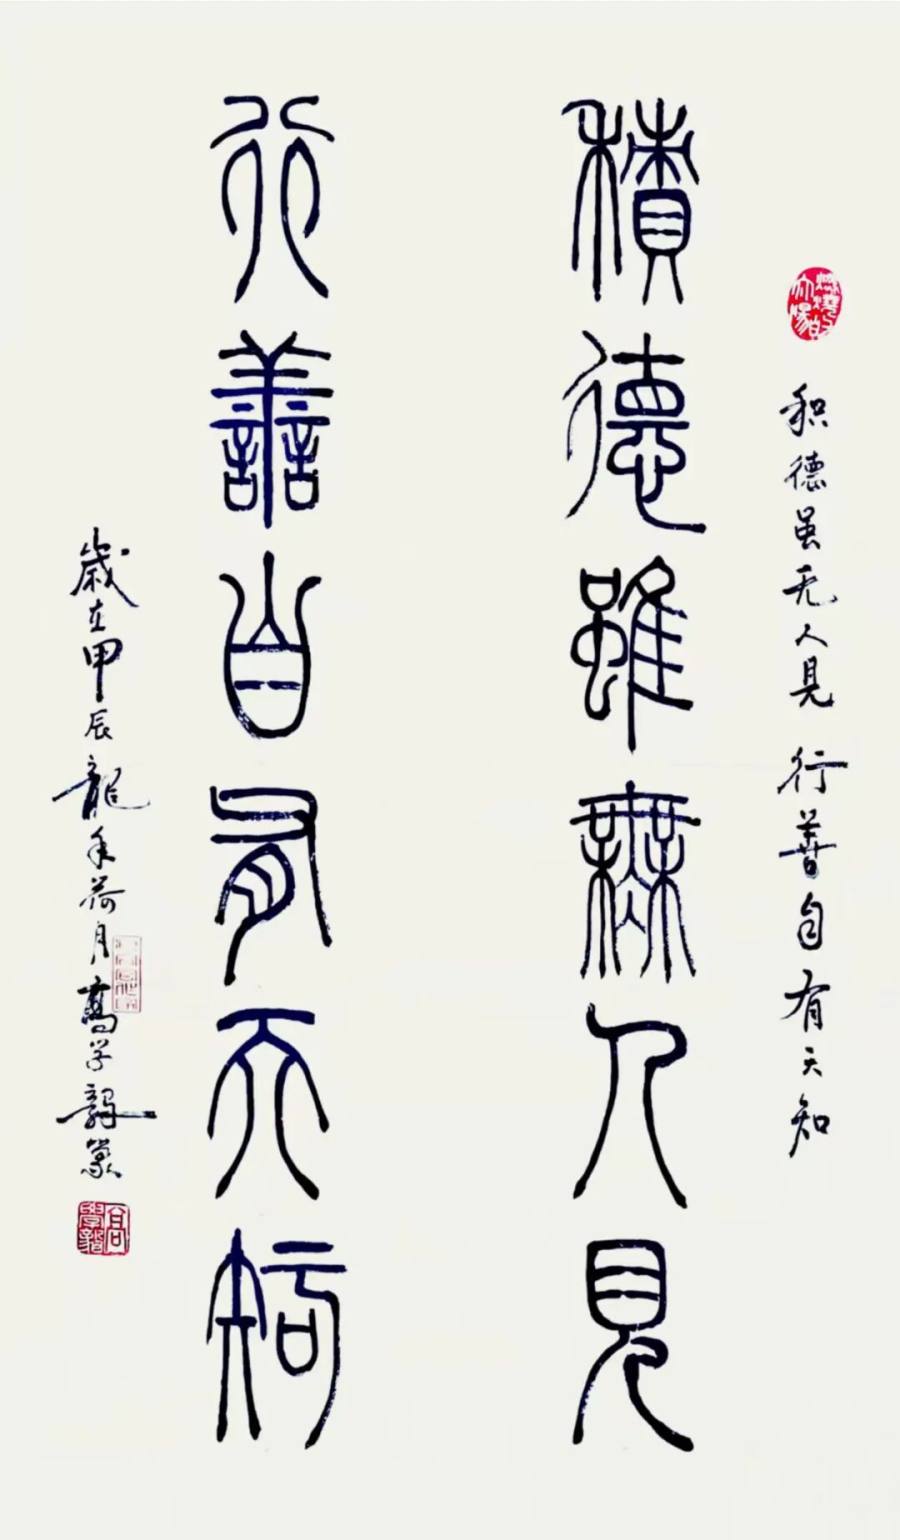 积德虽无人见 行善自有天知
積德雖無人見
行善自有天知
歲在甲辰龍年荷月髙学篆